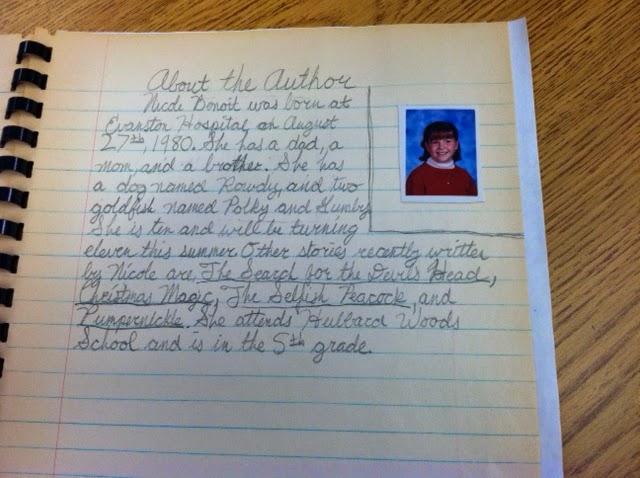 About the Author
Nicole Benoit was born at
Evanston Hospital, on August
27th, 1980. She has a dad, a
mom, and a brother. She has
a dog named Rowdy, and two
goldfish named Polky and Gumby.
She is ten and will be turning
eleven this summer. Other stories recently written
by Nicole are, The Search for the Devil's Head,
Christmas Magic, The Selfish Peacock, and
Pumpernickle. She attends Hubbard Woods
School and is in the 5th grade.